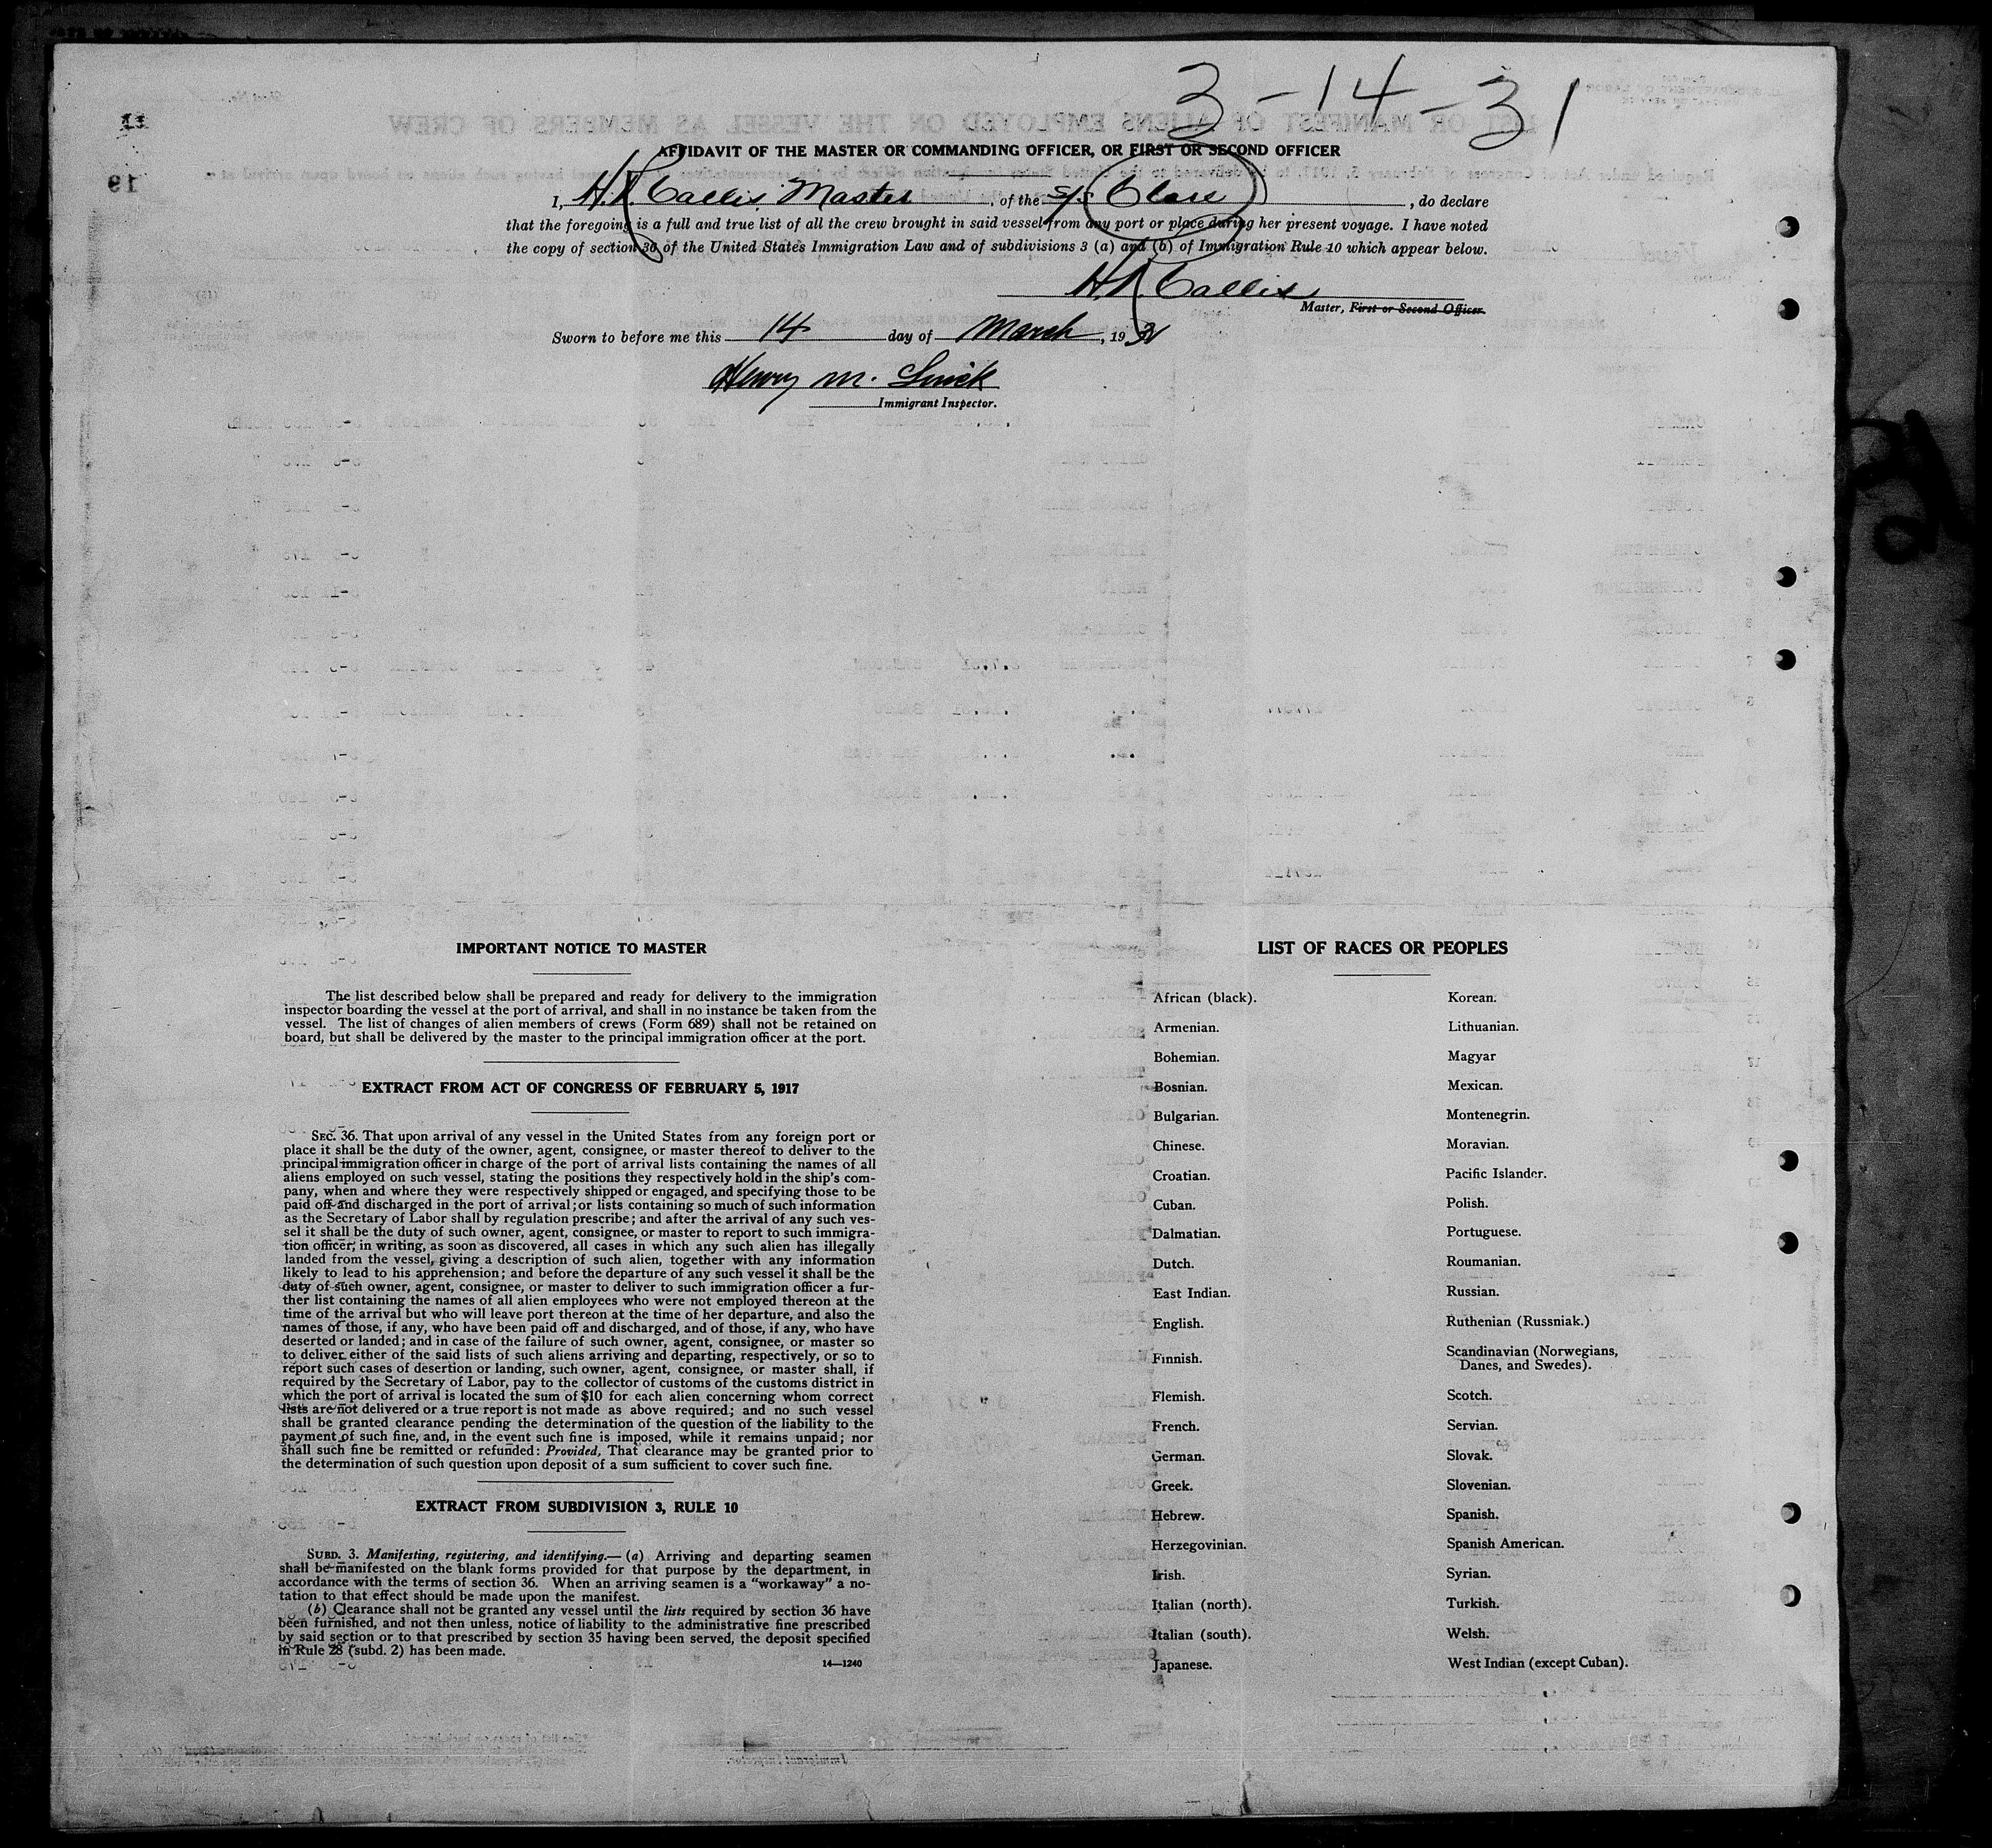 3-14-31
AFFIDAVIT OF THE MASTER OR COMMANDING OFFICER, OR FIRST OR SECOND OFFICER
I, H. Callis, Master, of the S/S Clare, do declare
that the foregoing is a full and true list of all the crew brought in said vessel from any port or place during her present voyage. I have noted
the copy of section 36 of the United States Immigration Law and of subdivisions 3 (a) and (b) of Immigration Rule 10 which appear below.
H. Callis
Master, First or Second Officer.
Sworn to before me this 14 day of March, 1931
Henry M.
Immigrant Inspector.
IMPORTANT NOTICE TO MASTER
The list described below shall be prepared and ready for delivery to the immigration
inspector boarding the vessel at the port of arrival, and shall in no instance be taken from the
vessel. The list of changes of alien members of crews (Form 689) shall not be retained on
board, but shall be delivered by the master to the principal immigration officer at the port.
EXTRACT FROM ACT OF CONGRESS OF FEBRUARY 5, 1917
SEC. 36. That upon arrival of any vessel in the United States from any foreign port or
place it shall be the duty of the owner, agent, consignee, or master thereof to deliver to the
principal immigration officer in charge of the port of arrival lists containing the names of all
aliens employed on such vessel, stating the positions they respectively hold in the ship's com-
pany, when and where they were respectively shipped or engaged, and specifying those to be
paid off and discharged in the port of arrival; or lists containing so much of such information
as the Secretary of Labor shall by regulation prescribe; and after the arrival of any such ves-
sel it shall be the duty of such owner, agent, consignee, or master to report to such immigra-
tion officer, in writing, as soon as discovered, all cases in which any such alien has illegally
landed from the vessel, giving a description of such alien, together with any information
likely to lead to his apprehension; and before the departure of any such vessel it shall be the
duty of such owner, agent, consignee, or master to deliver to such immigration officer a fur-
ther list containing the names of all alien employees who were not employed thereon at the
time of the arrival but who will leave port thereon at the time of her departure, and also the
names of those, if any, who have been paid off and discharged, and of those, if any, who have
deserted or landed; and in case of the failure of such owner, agent, consignee, or master so
to deliver either of the said lists of such aliens arriving and departing, respectively, or so to
report such cases of desertion or landing, such owner, agent, consignee, or master shall, if
required by the Secretary of Labor, pay to the collector of customs of the customs district in
which the port of arrival is located the sum of $10 for each alien concerning whom correct
lists are not delivered or a true report is not made as above required; and no such vessel
shall be granted clearance pending the determination of the question of the liability to the
payment of such fine, and, in the event such fine is imposed, while it remains unpaid; nor
shall such fine be remitted or refunded: Provided, That clearance may be granted prior to
the determination of such question upon deposit of a sum sufficient to cover such fine.
EXTRACT FROM SUBDIVISION 3, RULE 10
SUBD. 3. Manifesting, registering, and identifying.—(a) Arriving and departing seamen
shall be manifested on the blank forms provided for that purpose by the department, in
accordance with the terms of section 36. When an arriving seamen is a "workaway" a no-
tation to that effect should be made upon the manifest.
(b) Clearance shall not be granted any vessel until the lists required by section 36 have
been furnished, and not then unless, notice of liability to the administrative fine prescribed
by said section or to that prescribed by section 35 having been served, the deposit specified
in Rule 28 (subd. 2) has been made.
14—1240
LIST OF RACES OR PEOPLES
African (black).
Armenian.
Bohemian.
Bosnian.
Bulgarian.
Chinese.
Croatian.
Cuban.
Dalmatian.
Dutch.
East Indian.
English.
Finnish.
Flemish.
French.
German.
Greek.
Hebrew.
Herzegovinian.
Irish.
Italian (north).
Italian (south).
Japanese.
Korean.
Lithuanian.
Magyar
Mexican.
Montenegrin.
Moravian.
Pacific Islander.
Polish.
Portuguese.
Roumanian.
Russian.
Ruthenian (Russniak.)
Scandinavian (Norwegians,
Danes, and Swedes).
Scotch.
Servian.
Slovak.
Slovenian.
Spanish.
Spanish American.
Syrian.
Turkish.
Welsh.
West Indian (except Cuban).